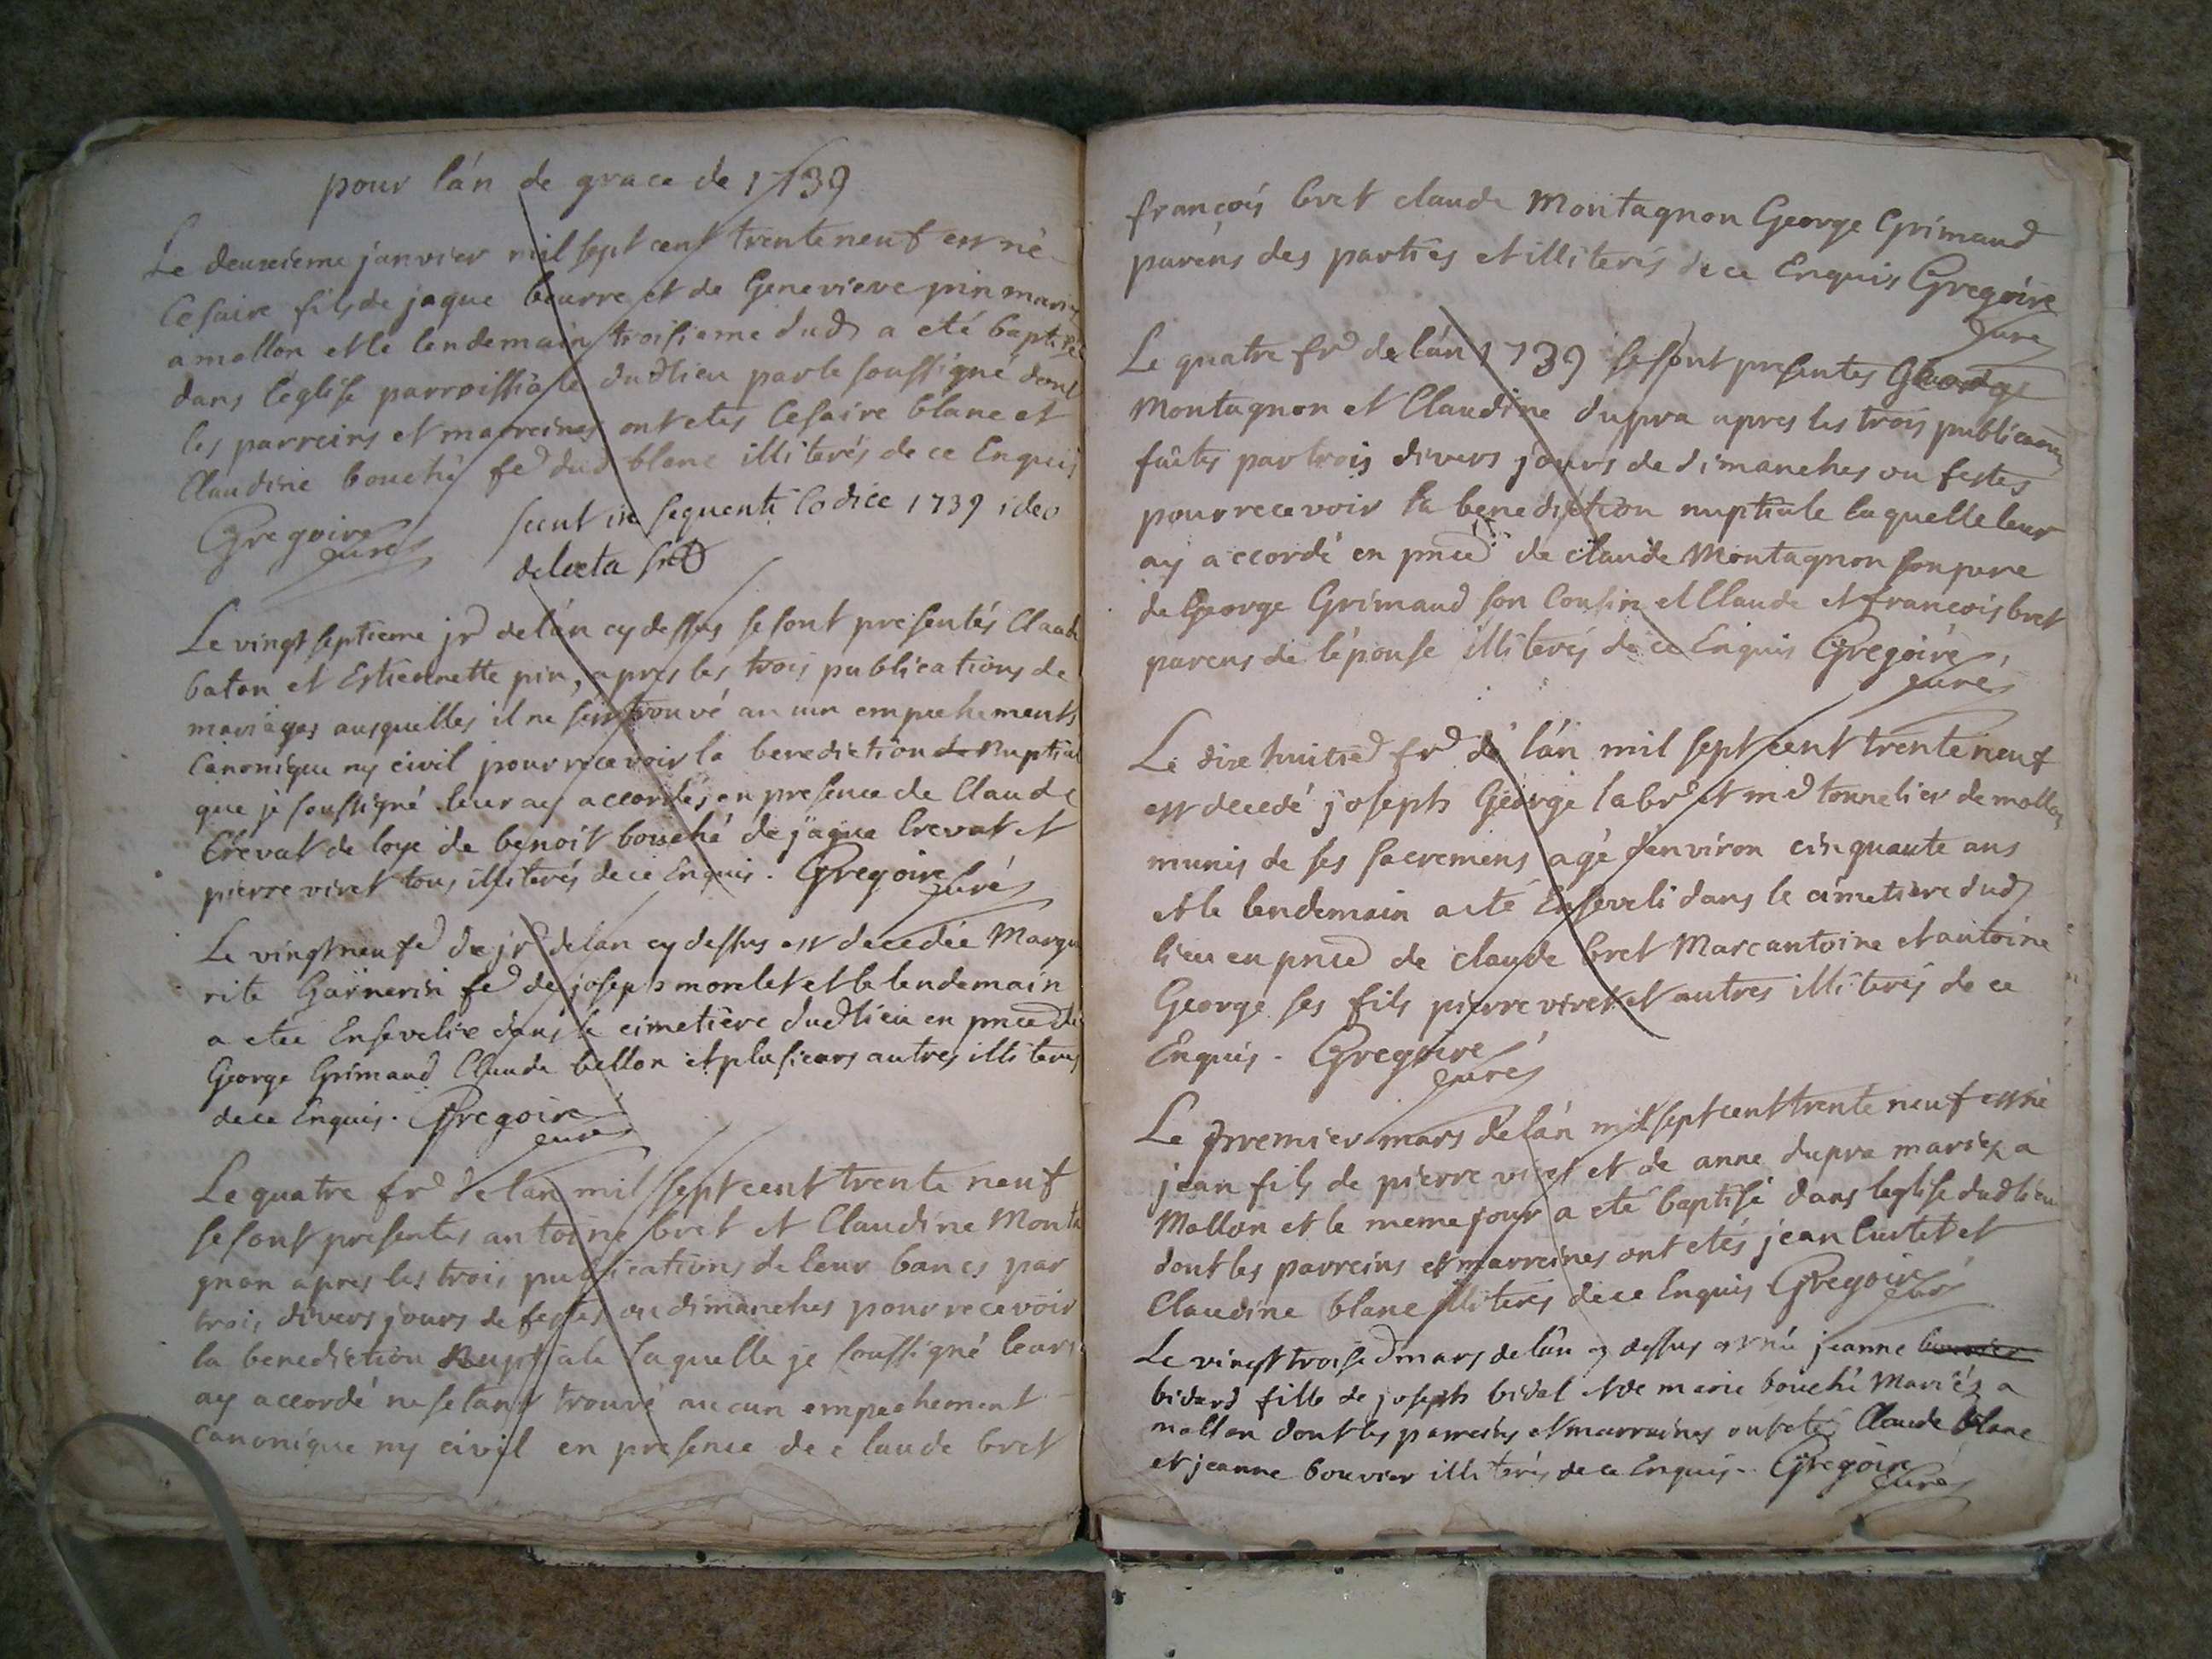 pour lán de grace de 1739
Le deuxieme janvier mil sept cent trente neuf est né
Cesaire fils de jaque beurre et de Genevieve pin mariez
a mollon et le lendemain troisieme dud a eté baptisé
dans l'eglise parroissiale dudlieu par le soussigné dont
les parreins et marreines ont etés Cesaire blanc et
Claudine bouché fe dud blanc illiterés de ce Enquis
Gregoire curé
sunt in sequenti Codice 1739 ideo
delecta
Le vingt septieme jr de lán cy dessus se sont presentés Claude
baton et Estiennette pin, apres les trois publications de
mariages ausquelles il ne s'est trouvé aucun empechements
Canonique ny civil pour recevoir la benediction de Nuptial
que je soussigné leur ay accordé, en presence de Claude
Crevat de loye de benoit bouché de jaque Crevat et
pierre viret tous illiterés de ce Enquis. Gregoire
curé
Le vingt neufe de jr de lan cy dessus est decedée Margue
rite Garnerin fe de joseph morelet et le lendemain
a etee Ensevelie dans le cimetière dudlieu en pnce de
George Grimaud Claude bellon et plusieurs autres illiterés
de ce Enquis. Gregoire
curé
Le quatre fr de lan mil sept cent trente neuf
se sont presentes antoine bret et Claudine Monta
gnon apres les trois publications de leur bancs par
trois divers jours de festes ou dimanches pour recevoir
la benediction Nuptiale laquelle je soussigné leurs
ay accordé ne setant trouvé aucun empechement
Canonique ny civil en presence de claude bret
françois bret claude Montagnon George Grimaud
parens des parties et illiterés de ce Enquis Gregoire
curé
Le quatre fr de lán 1739 se sont presentes George
Montagnon et Claudine dupra apres les trois publications
faites par trois divers jours de dimanches ou festes
pour recevoir la benediction nuptiale laquelle leur
ay accordé en pnce de claude Montagnon son pere
de George Grimaud son Cousin et Claude et francois bret
parens de l'épouse illiterés de ce Enquis Gregoire
curé
Le dixe huitie fr de lán mil sept cent trente neuf
est decedé joseph George labr et md tonnelier de mollon
munis de ses sacremens agé d'environ cinquante ans
et le lendemain a eté Enseveli dans le cimetiere dud
lieu en pnce de claude bret Marcantoine et antoine
George ses fils pierre viret et autres illiterés de ce
Enquis. Gregoire
curé
Le premier mars de lán mil sept cent trente neuf est né
jean fils de pierre viret et de anne dupra mariez a
Mollon et le meme jour a eté baptisé dans leglise dudlieu
dont les parreins et marreines ont etés jean Curtet et
Claudine blanc illiterés de ce Enquis Gregoire
curé
Le vingt troise mars de lán cy dessus est née jeanne
bidard fille de joseph bidal et de marie bouché Mariés a
mollon dont les parreins et marraines ont etés Claude blanc
et jeanne bouvier illiterés de ce Enquis. Gregoire
curé